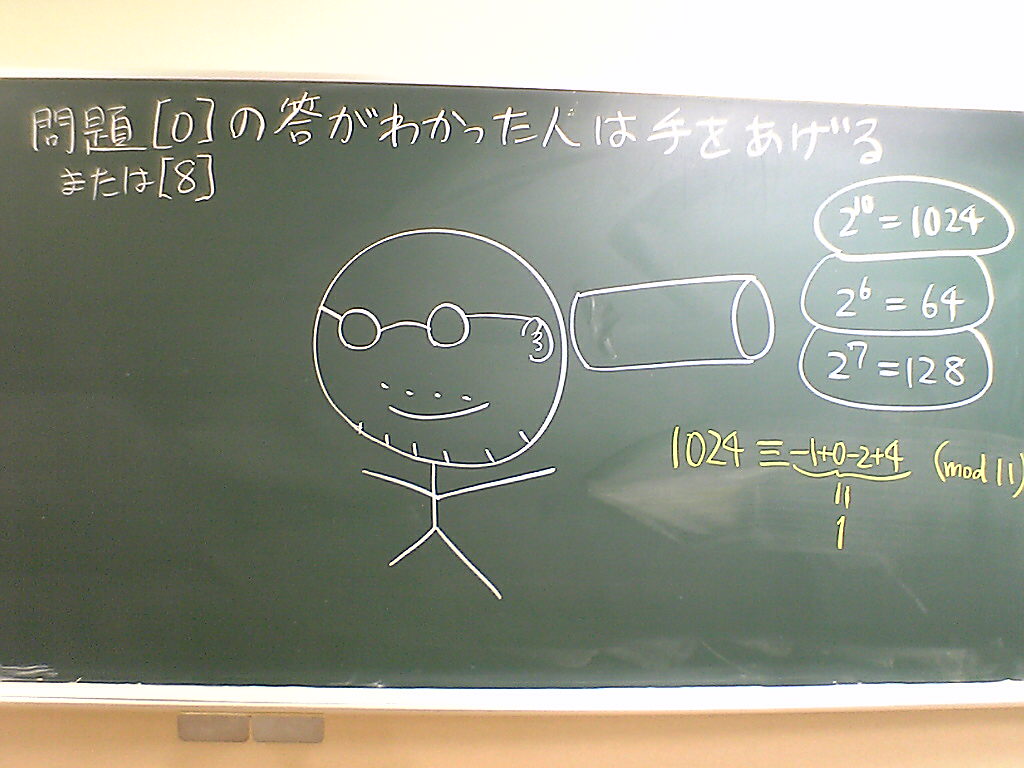 問題[0]の答がわかった人は手をあげる
または[8]
2^10 = 1024
2^6 = 64
2^7 = 128
1024 ≡ -1+0-2+4 (mod 11)
=
1